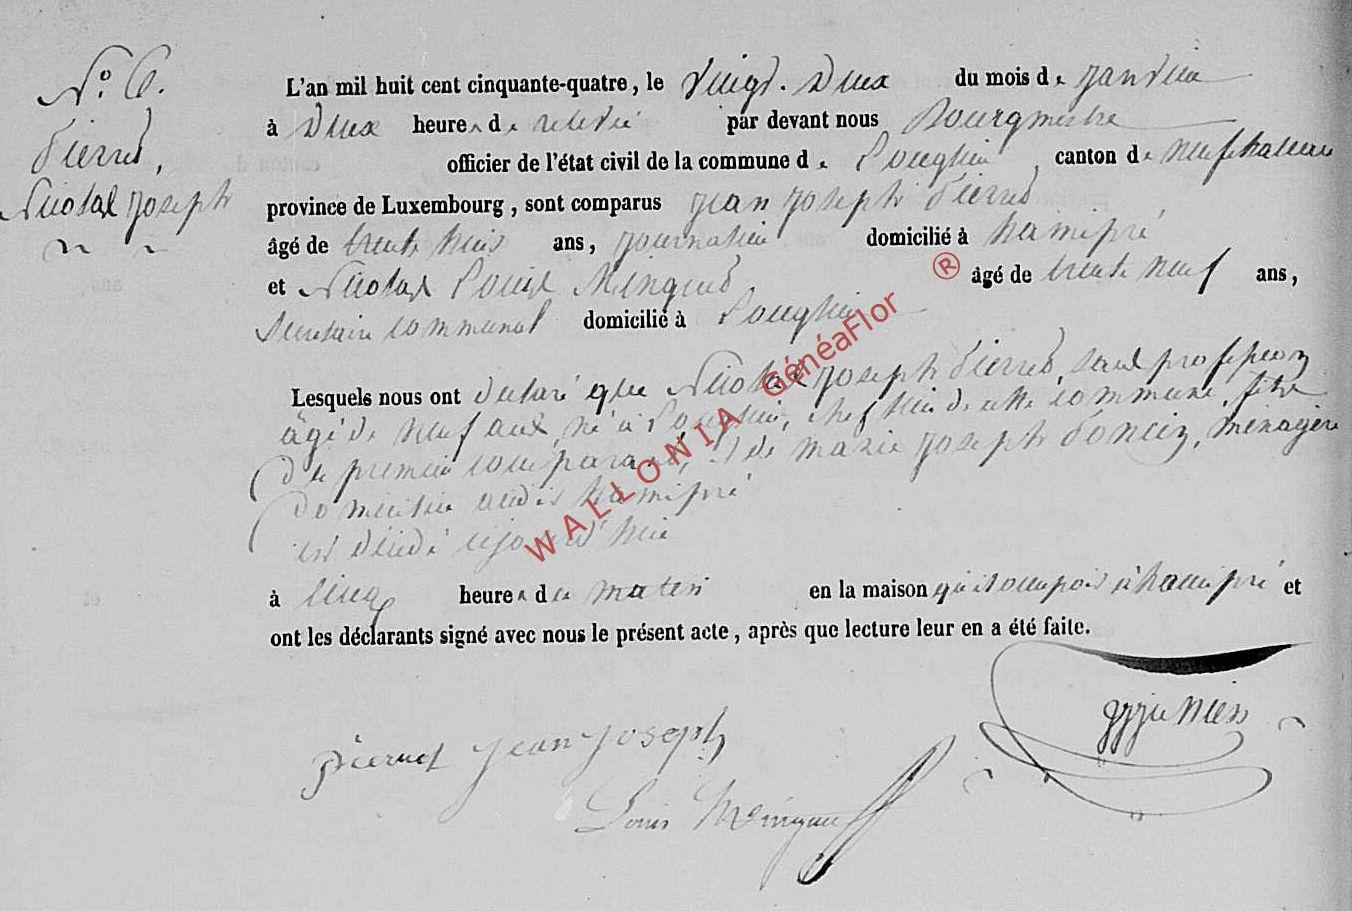 N.° 6.
Pierret,
Nicolas Joseph
L'an mil huit cent cinquante-quatre, le vingt-deux du mois de janvier
à deux heures de relevée par devant nous Bourgmestre
officier de l'état civil de la commune de Longlier, canton de neufchateau
province de Luxembourg, sont comparus jean joseph Pierret
âgé de trente huit ans, journalier domicilié à hamipré
et Nicolas Louis Minguet âgé de trente neuf ans,
secretaire communal domicilié à Longlier
Lesquels nous ont declaré que Nicolas joseph Pierret, sans profession
âgé de neuf ans, né à Longlier, chef lieu de cette commune, fils
du premier comparant, et de marie joseph, ménagère
domiciliée audit hamipré
est décédé cejourd'hui
à cinq heures du matin en la maison qu'il occupoit à hamipré et
ont les déclarants signé avec nous le présent acte, après que lecture leur en a été faite.
pierret jean joseph
Louis Minguet
WALLONIA GénéaFlor ®